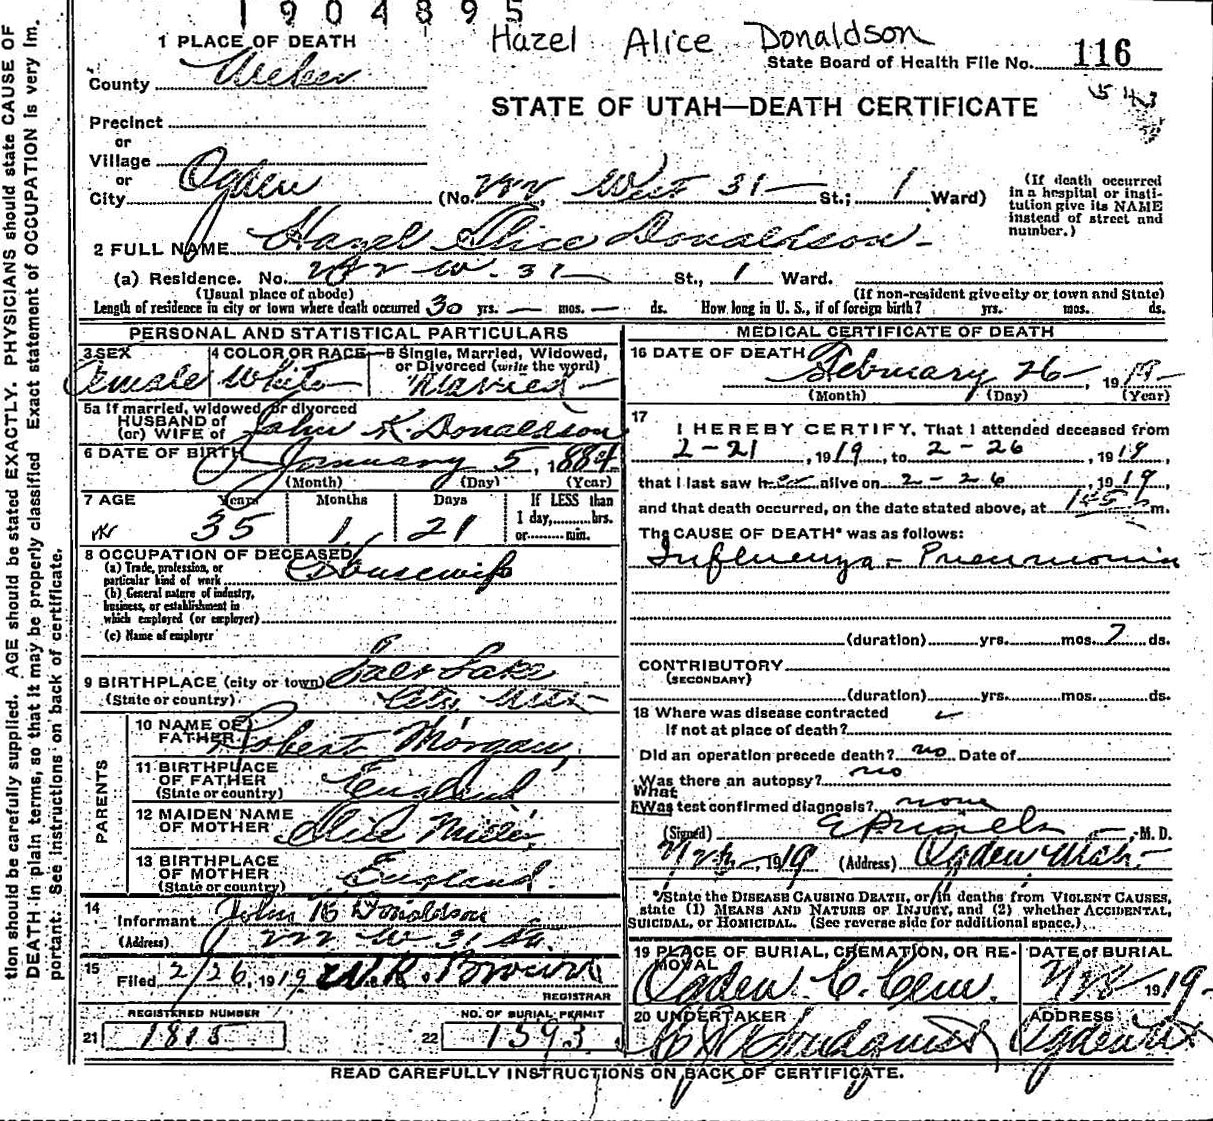 1904895
Hazel Alice Donaldson
State Board of Health File No. 116
1 PLACE OF DEATH
County Weber
STATE OF UTAH—DEATH CERTIFICATE
Precinct
or
Village
or
City Ogden (No. 222 West 31 St.; 1 Ward)
(If death occurred in a hospital or insti-
tution give its NAME instead of street and number.)
2 FULL NAME Hazel Alice Donaldson
(a) Residence. No. 222 W. 31 St., 1 Ward.
(Usual place of abode) (If non-resident give city or town and State)
Length of residence in city or town where death occurred 30 yrs. — mos. — ds. How long in U. S., if of foreign birth? yrs. mos. ds.
PERSONAL AND STATISTICAL PARTICULARS
3 SEX 4 COLOR OR RACE 5 Single, Married, Widowed,
or Divorced (write the word)
Female White Married
5a If married, widowed or divorced
HUSBAND of
(or) WIFE of John K. Donaldson
6 DATE OF BIRTH January 5, 1884
(Month) (Day) (Year)
7 AGE Years Months Days If LESS than
1 day,.....hrs.
or.....min.
35 1 21
8 OCCUPATION OF DECEASED
(a) Trade, profession, or
particular kind of work Housewife
(b) General nature of industry,
business, or establishment in
which employed (or employer)
(c) Name of employer
9 BIRTHPLACE (city or town) Salt Lake
(State or country) City Utah
PARENTS
10 NAME OF
FATHER Robert Morgan
11 BIRTHPLACE
OF FATHER England
(State or country)
12 MAIDEN NAME
OF MOTHER Alice
13 BIRTHPLACE
OF MOTHER England.
(State or country)
14
Informant John K Donaldson
(Address) 222 W 31 St.
15
Filed 2/26, 1919 W. R. Brown
REGISTRAR
REGISTERED NUMBER NO. OF BURIAL PERMIT
21 1815 22 1593
MEDICAL CERTIFICATE OF DEATH
16 DATE OF DEATH February 26, 1919
(Month) (Day) (Year)
17
I HEREBY CERTIFY, That I attended deceased from
2-21, 1919, to 2-26, 1919,
that I last saw her alive on 2-26, 1919,
and that death occurred, on the date stated above, at m.
The CAUSE OF DEATH* was as follows:
Influenza - Pneumonia
(duration) yrs. mos. 7 ds.
CONTRIBUTORY
(SECONDARY)
(duration) yrs. mos. ds.
18 Where was disease contracted
If not at place of death?
Did an operation precede death? no Date of
Was there an autopsy? no
What
Was test confirmed diagnosis? none
(Signed) M. D.
1919 (Address) Ogden Utah
*State the DISEASE CAUSING DEATH, or in deaths from VIOLENT CAUSES,
state (1) MEANS AND NATURE OF INJURY, and (2) whether ACCIDENTAL,
SUICIDAL, or HOMICIDAL. (See reverse side for additional space.)
19 PLACE OF BURIAL, CREMATION, OR RE-
MOVAL
Ogden C. Cem.
DATE of BURIAL
1919
20 UNDERTAKER
ADDRESS
Ogden Ut
READ CAREFULLY INSTRUCTIONS ON BACK OF CERTIFICATE.
tion should be carefully supplied. AGE should be stated EXACTLY. PHYSICIANS should state CAUSE OF
DEATH in plain terms, so that it may be properly classified Exact statement of OCCUPATION is very im.
portant. See instructions on back of certificate.